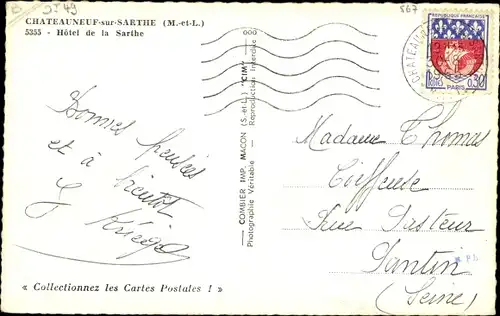 CHATEAUNEUF-sur-SARTHE (M.-et-L.)
5355 - Hôtel de la Sarthe
567
REPUBLIQUE FRANÇAISE
POSTES 0,30
PARIS
Bonnes Pensées
et à
bientôt
COMBIER IMP. MACON (S.-et-L.) "CIM"
Photographie Véritable - Reproduction Interdite
Madame Thomas
Coiffeuse
Rue Pasteur
Pantin
(Seine)
« Collectionnez les Cartes Postales ! »